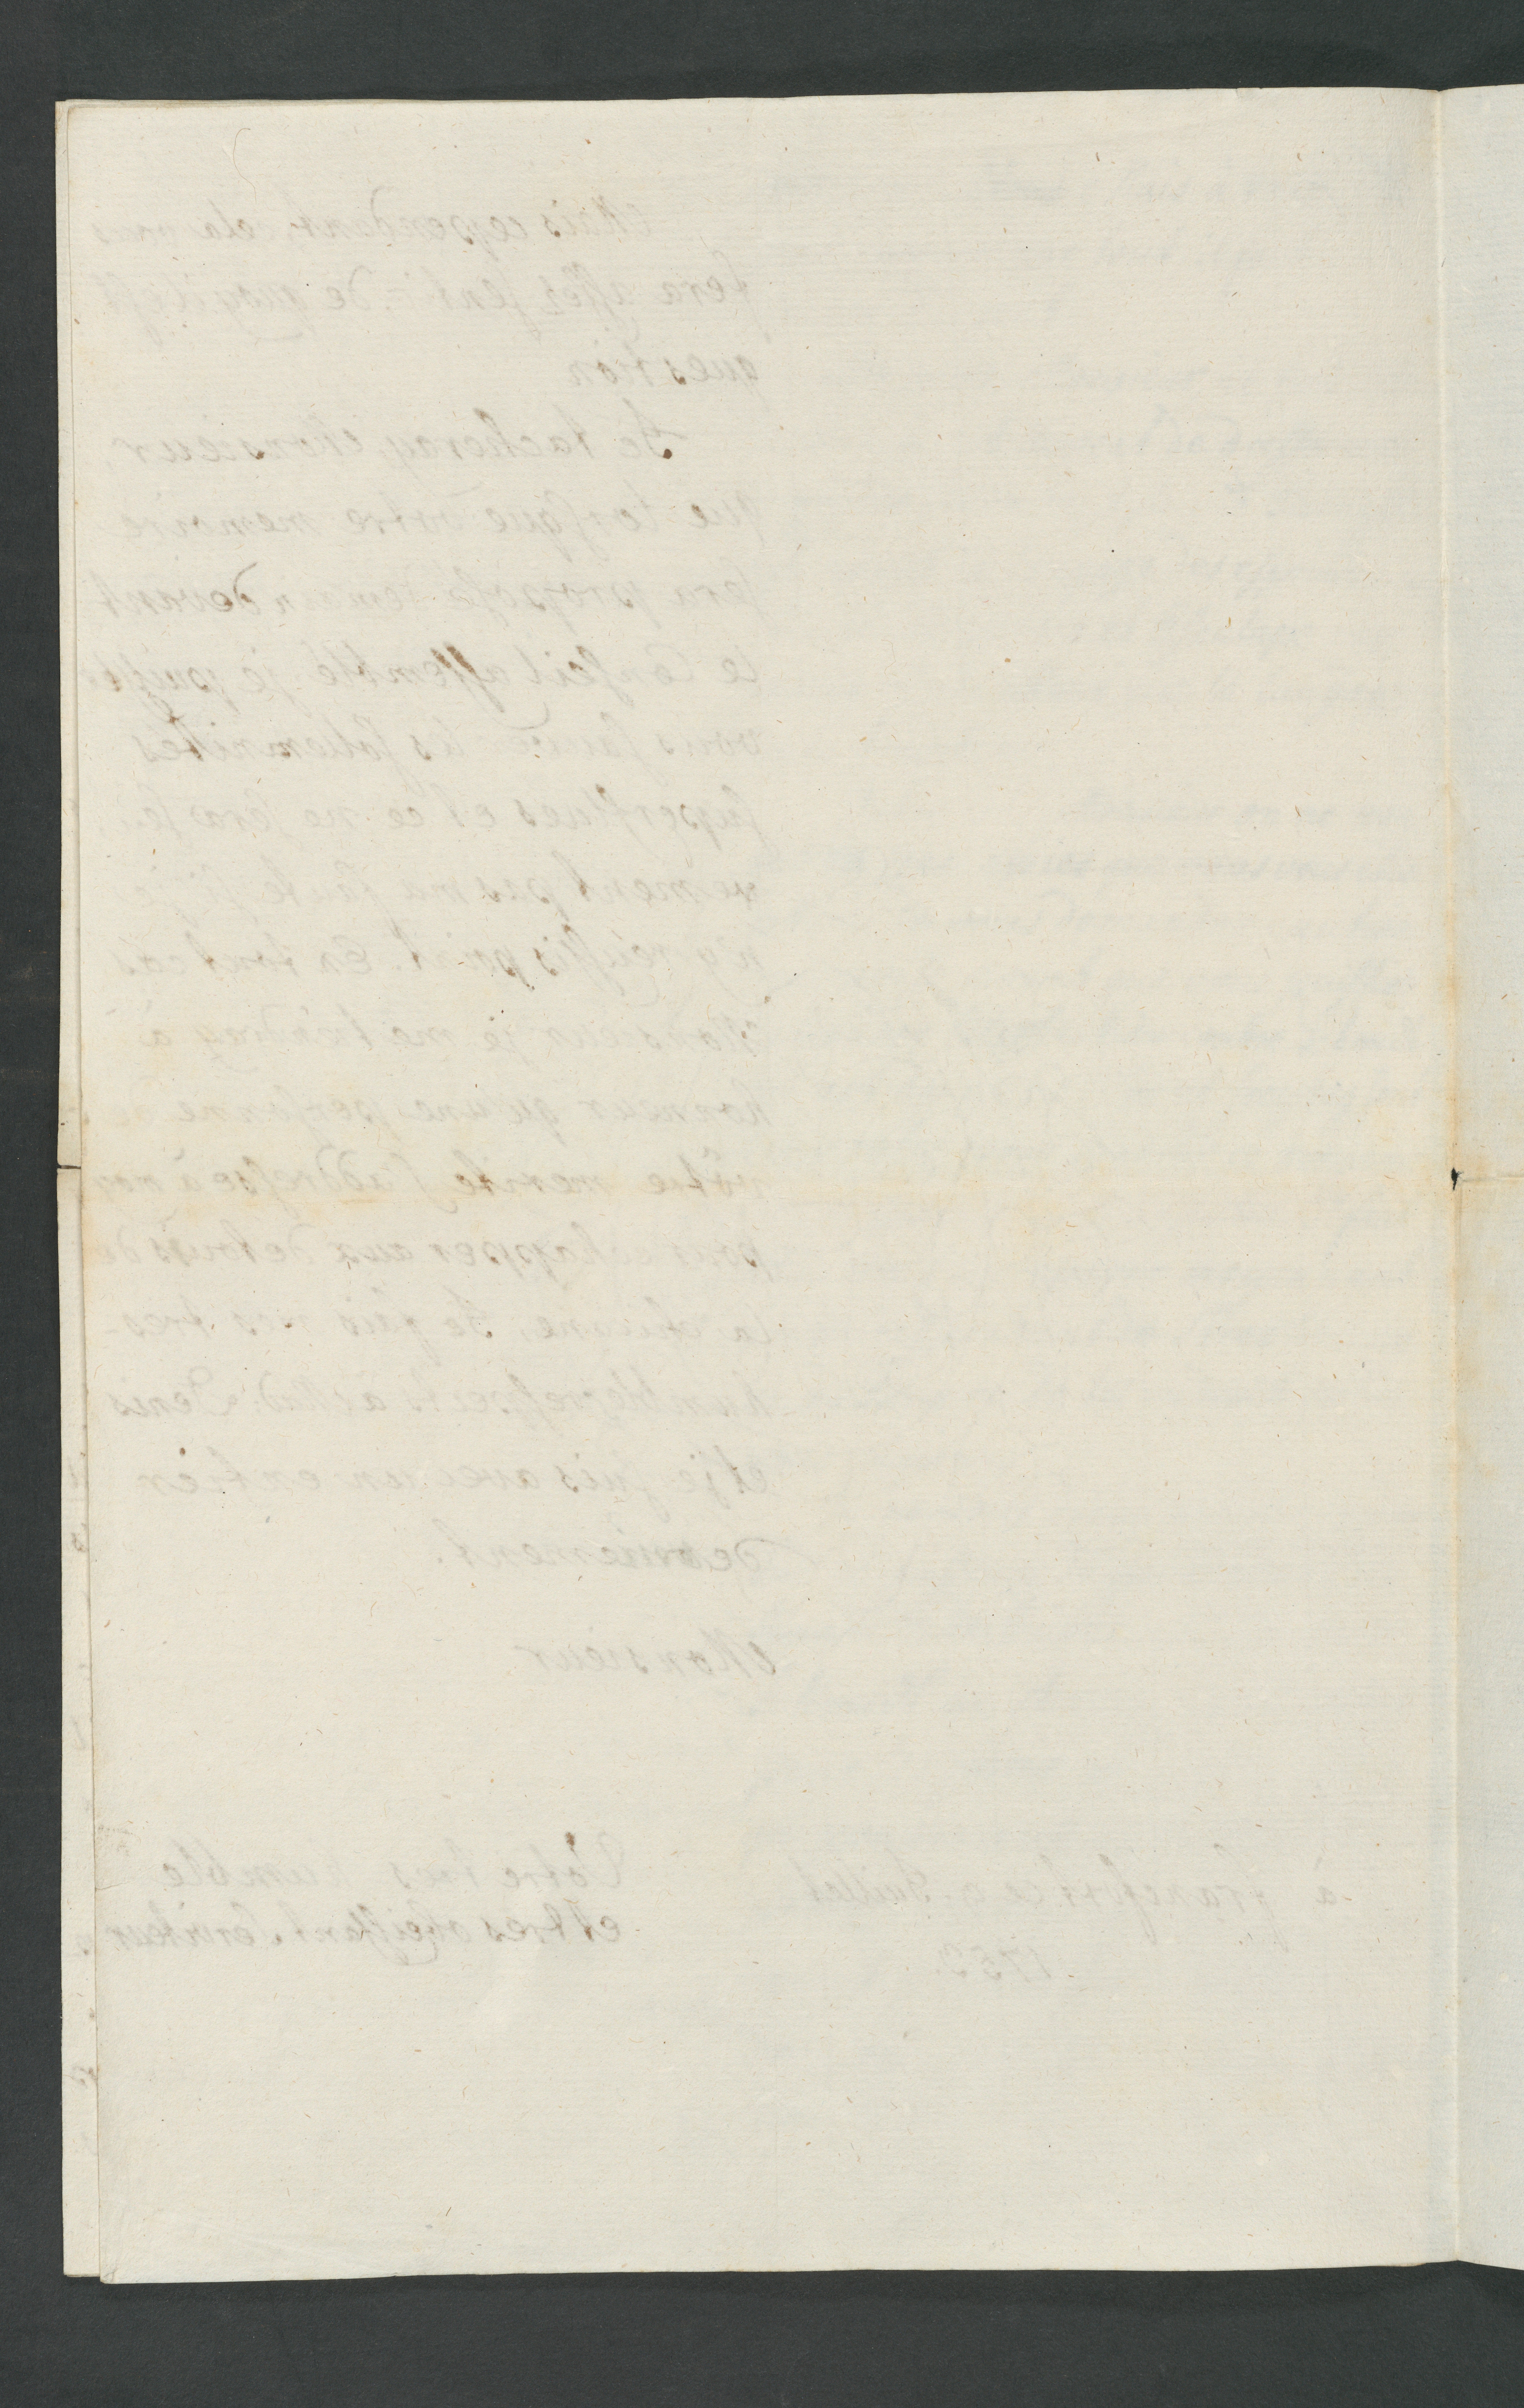 Mais cependant, cela vous
sera assés de quoy il est
question
Je tacheray, Monsieur
que lorsque votre memoire
sera proposé demain devant
le Conseil assemblé je puisse
vous sauver les solemnités
superflues et ce ne sera
pas ma faute si je
n'y reussis point. En tout cas
Monsieur je me tiendray à
honneur qu'une personne de
vôtre merite s'addresse à moy
pour echapper aux detours de
la chicane. Je fais mes tres-
humbles respects à Mad. Denis
et je suis avec un entier
devouement.
Monsieur
Vôtre tres humble
et tres obeissant Serviteur
à francfort ce Juillet
1753.